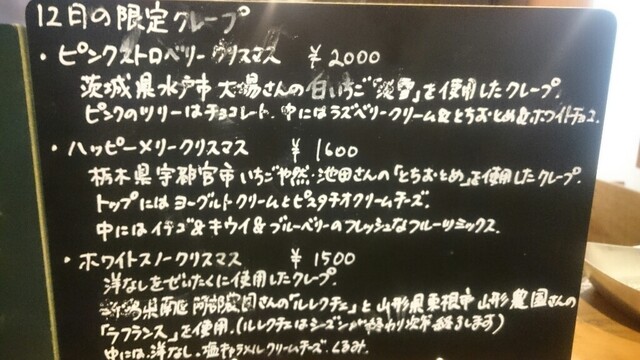 12月の限定クレープ
・ピンクストロベリークリスマス ￥2000
茨城県水戸市 大場さんの白いちご「淡雪」を使用したクレープ.
ピンクのツリーはチョコレート. 中にはラズベリークリーム&とちおとめ&ホワイトチョコ.
・ハッピーメリークリスマス ￥1600
栃木県宇都宮市いちご 池田さんの「とちおとめ」を使用したクレープ.
トップにはヨーグルトクリームとピスタチオクリームチーズ.
中にはイチゴ&キウイ&ブルーベリーのフレッシュなフルーツミックス.
・ホワイトスノークリスマス ￥1500
洋なしをぜいたくに使用したクレープ.
新潟県南区 阿部農園さんの「ルレクチェ」と山形県東根市 山形農園さんの
「ラフランス」を使用.(ルレクチェはシーズンが終わり次第終了します)
中には.洋なし.塩キャラメルクリームチーズ.くるみ.